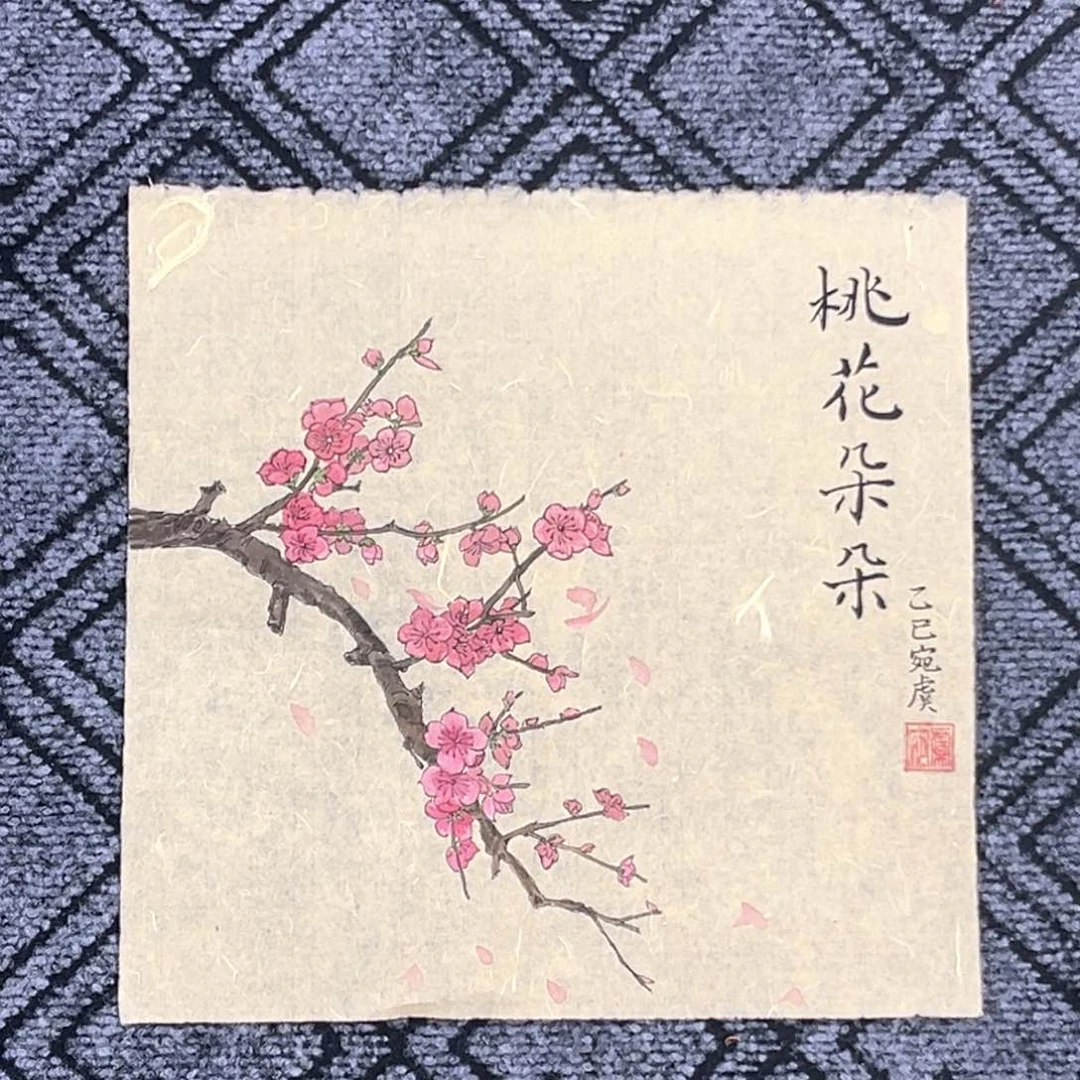 桃花朵朵
乙巳宛虞